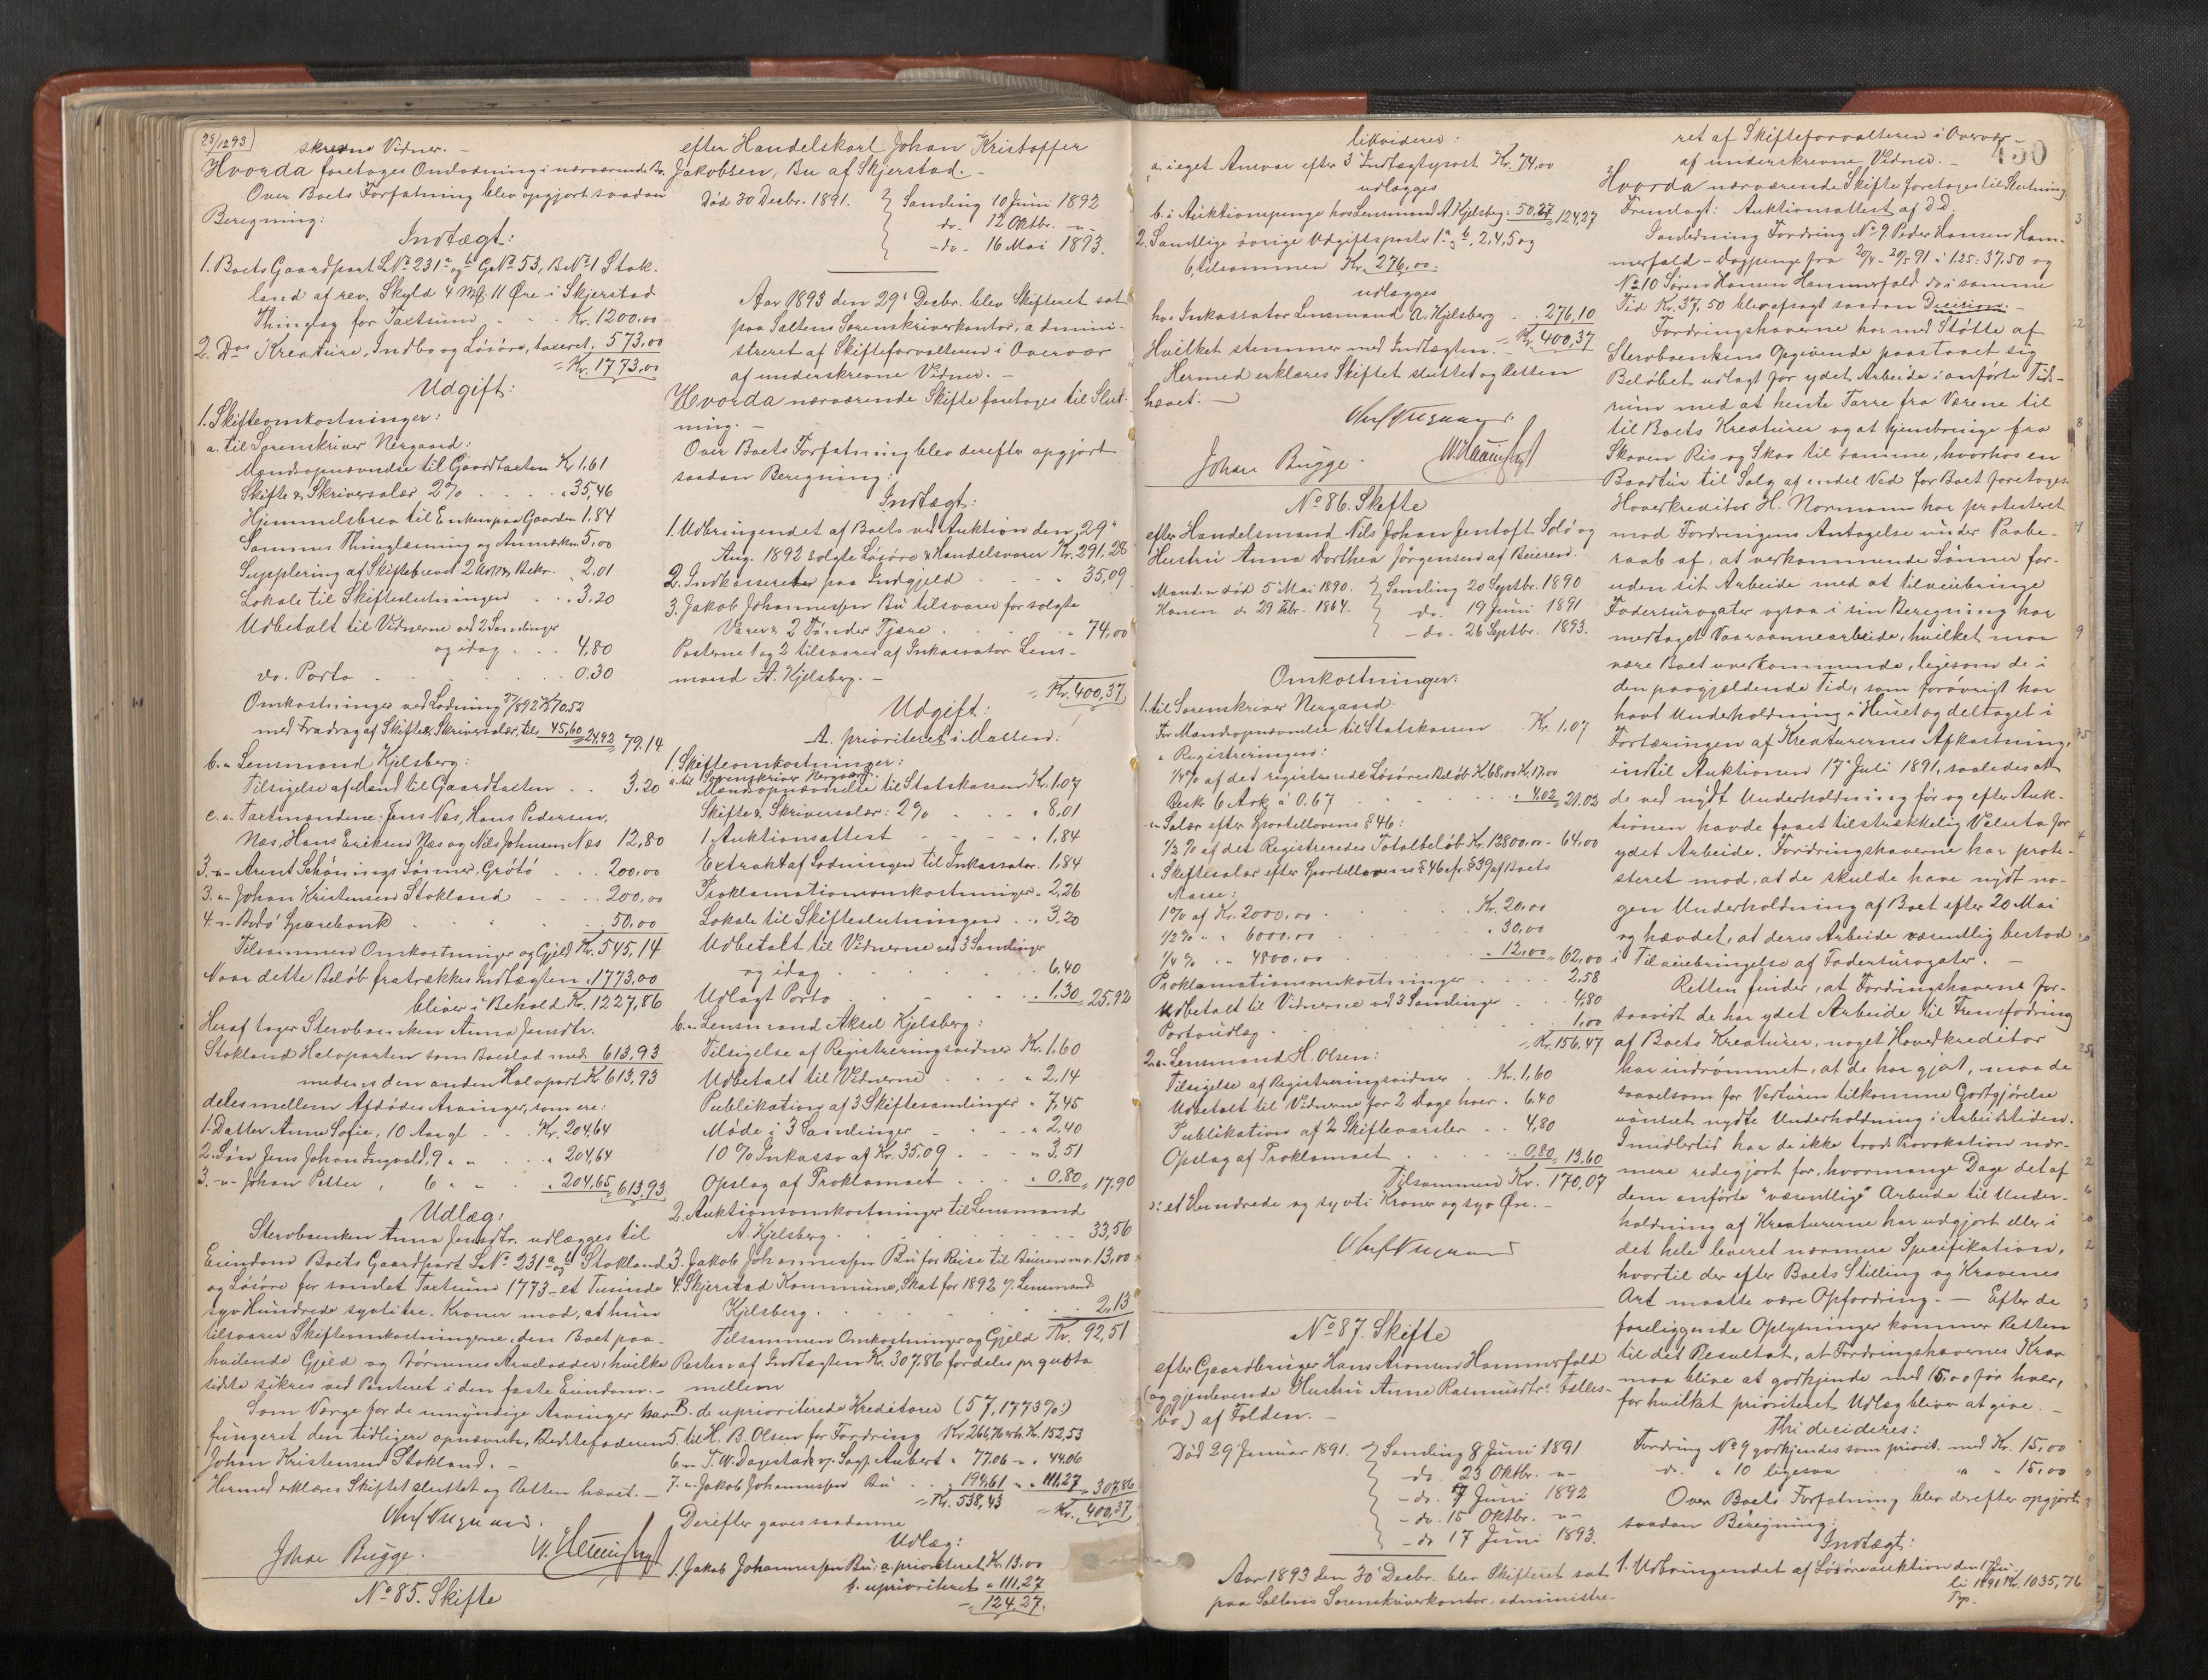 28/12 93)
skrevne Vidner. –
Hvorda foretoges Omlodning i nærværende Bo.
Over Boets Forfatning blev opgjort saadan
Beregning:
Indtægt:
1. Boets Gaardpart L.No 231 a og b G.No 53, B.No 1 Stok-
land af rev. Skyld 4 Mk 11 Øre i Skjerstad
Thinglag for Taxtsum Kr. 1200,00
2. Dos Kreature, Indbo og Løsøre, taxeret 573,00
= Kr. 1773,00
Udgift:
1. Skifteomkostninger:
a. til Sorenskriver Nergaard:
Mandsopnævnelse til Gaardtaxten Kr 1,61
Skifte & Skriversalær 2% " 35,46
Hjemmelsbrev til Enken paa Gaarden 1,84
Sammes Thinglæsning og Anmærkn. 5,00
Supplering af Skiftebrevet 2 Bekr. " 2,01
Lokale til Skifteslutningen 3.20
Udbetalt til Vidnerne ved 2 Samlinger
og idag 4,80
do. Porto 0.30
Omkostninger ved Lodning 27/8 92 Kr 70.52
med Fradrag af Skifte & Skriversalær, til 45,60 = 24,92 79.14
b. " Lensmand Kjelsberg:
Tilsigelse af Mænd til Gaardtaxten 3.20
c. " Taxtmændene: Jens Næs, Hans Pedersen,
Næs, Hans Eriksen Næs og Nils Johnsen Næs 12,80
3. " Arent Schønings Sønner, Grøtø 200,00
3. " Johan Kristensen Stokland 200,00
4. " Bodø Sparebank 50,00
Tilsammen Omkostninger og Gjeld Kr. 545,14
Naar dette Beløb fratrækkes Indtægten 1773,00
bliver i Behold Kr. 1227,86
Heraf tager Stervboenken Anna Jensdtr.
Stokland Halvparten som Boeslod med 613,93
medens den anden Halvpart Kr 613,93
deles mellem Afdødes Arvinger, som ere:
1. Datter Anne Sofie, 10 Aar gl Kr. 204,64
2. Søn Jens Johan Ingvald, 9 " " " 204,64
3. " Johan Petter, 6 " " " 204,65 = 613,93
Udlæg:
Stervboenken Anna Jensdtr. udlægges til
Eiendom Boets Gaardpart L.No 231 a og b Stokland
og Løsøre for samlet Taxtsum 1773 – et Tusinde
syv Hundrede syvtitre – Kroner mod, at hun
tilsvarer Skifteomkostningerne, den Boet paa-
hvilende Gjeld og Børnenes Arvelodder, hvilke
sidste sikres ved Panteret i den faste Eiendom. –
Som Værge for de umyndige Arvinger har
fungeret den tidligere opnævnte, Bedstefaderen
Johan Kristensen Stokland. –
Hermed erklæres Skiftet sluttet og Retten hævet. –
Johan Bugge.
No 85. Skifte
efter Handelskarl Johan Kristoffer
Jakobsen, Bu af Skjerstad. –
Død 30 Decbr. 1891. Samling 10 Juni 1892
do. 12 Oktbr. "
– do – 16 Mai 1893.
Aar 1893 den 29de Decbr. blev Skifteret sat
paa Saltens Sorenskriverkontor, admini-
streret af Skifteforvalteren i Overvær
af underskrevne Vidner. –
Hvorda nærværende Skifte foretoges til Slut-
ning. –
Over Boets Forfatning blev derefter opgjort
saadan Beregning:
Indtægt:
1. Udbringendet af Boets ved Auktion den 29de
Aug. 1892 solgte Løsøre & Handelsvarer Kr. 291,28
2. Indkasseret paa Indgjeld " 35,09
3. Jakob Johannessen Bu tilsvarer for solgte
Varer & 2 Tønder Tjære " 74,00
Posterne 1 og 2 tilsvares af Inkassator Lens-
mand A. Kjelsberg. –
= Kr. 400,37
Udgift:
A. prioriteret i Massen:
1. Skifteomkostninger:
a. til Sorenskriver Nergaard:
Mandsopnævnelse til Statskassen Kr. 1,07
Skifte & Skriversalær: 2% " 8,01
1 Auktionsattest " 1,84
Extrakt af Lodningen til Inkassator 1,84
Proklamationsomkostninger 2,26
Lokale til Skifteslutningen 3.20
Udbetalt til Vidnerne ved 3 Samlinger
og idag 6,40
Udlagt Porto 1,30 = 25,92
b. " Lensmand Aksel Kjelsberg:
Tilsigelse af Registreringsvidner Kr. 1,60
Udbetalt til Vidnerne " 2,14
Publikation af 3 Skiftesamlinger " 7,45
Møde i 3 Samlinger " 2,40
10% Inkasso af Kr. 35.09 " 3,51
Opslag af Proklamaet " 0,80 = 17.90
2. Auktionsomkostninger til Lensmand
A. Kjelsberg 33,56
3. Jakob Johannessen Bu for Reise til Beieren m.v. 13,00
4. Skjerstad Kommune, Skat for 1892 v/ Lensmand
Kjelsberg 2,13
Tilsammen Omkostninger og Gjeld Kr. 92,51
Resten af Indtægten Kr. 307,86 fordeles pr quota
mellem
B. de uprioriterede Kreditorer (57,1773%)
5. til H. B. Olsen for Fordring Kr. 266,76 erh. Kr. 152,53
6. " T. W. Dagestad v. Sagf. Aubert " 77.06 " " 44.06
7. " Jakob Johannessen Bu 194,61 " " 111,27 = 307,86
= Kr. 538,43 = Kr. 400,37
Derefter gaves saadanne
Udlæg:
1. Jakob Johannessen Bu: a. prioriteret Kr. 13.00
b. uprioriteret " 111,27
= 124,27.
likvideres:
a. i eget Ansvar efter 3die Indtægtspost Kr. 74,00
udlægges
b. i Auktionspenge hos Lensmand A. Kjelsberg 50,27 = 124,27
2. Samtlige øvrige Udgiftsposter 1 a og b, 2, 4, 5 og
6, tilsammen Kr. 276,00.
udlægges
hos Inkassator Lensmand A. Kjelsberg 276,10
Hvilket stemmer med Indtægten. = Kr. 400,37
Hermed erklæres Skiftet sluttet og Retten
hævet. –
Johan Bugge.
No 86. Skifte
efter Handelsmand Nils Johan Jentoft Solø og
Hustru Anna Dorthea Jørgensen af Beieren.
Manden død 5te Mai 1890. Samling 20 Septbr. 1890
Konen d. 29 Febr. 1864. do. 19 Juni 1891
– do – 26 Septbr. 1893.
Omkostninger:
1. til Sorenskriver Nergaard:
For Mandsopnævnelse til Statskassen Kr. 1,07
" Registreringen:
1/4% af det registrerede Løsøres Beløb Kr. 68,00 Kr. 17.00
Besk. 6 Ark à 0.67 " 4,02 = 21.02
" Salær efter Sportellovens § 46:
1/2% af det Registreredes Totalbeløb Kr. 12800,00 – 64,00
" Skiftesalær efter Sportellovens § 46 cfr. § 39 af Boets
Masse:
1% af Kr. 2000,00 Kr. 20,00
1/2% " " 6000,00 " 30,00
1/4% " " 4800,00 " 12,00 = 62,00
Proklamationsomkostninger 2,58
Udbetalt til Vidnerne ved 3 Samlinger 4,80
Portoudlæg 1,00
= Kr. 156,47
2. " Lensmand H. Olsen:
Tilsigelse af Registreringsvidner Kr. 1,60
Udbetalt til Vidnerne for 2 Dage hver 6.40
Publikation af 2 Skiftevarsler 4,80
Opslag af Proklamaet 0.80 = 13.60
Tilsammen Kr. 170,07
ɔ: et Hundrede og syvti Kroner og syv Øre. –
No 87. Skifte
efter Gaardbruger Hans Aronsen Hammerfald
(og gjenlevende Hustru Anne Rasmusdtrs. Fælles-
bo) af Folden. –
Død 29 Januar 1891. Samling 8 Juni 1891
do. 23 Oktbr. "
– do. 7 Juni 1892
– do. 15 Oktbr. "
– do 17 Juni 1893.
Aar 1893 den 30de Decbr. blev Skifteret sat
paa Saltens Sorenskriverkontor, administre-
450
ret af Skifteforvalteren i Overvær
af underskrevne Vidner. –
Hvorda nærværende Skifte foretoges til Slutning
Fremlagt: Auktionsattest af d.D.
I Anledning Fordring No 9. Peder Hansen Ham-
merfald – Dagpenge fra 20/4 – 20/5 91 à 1.25: 37,50 og
No 10 Søren Hansen Hammerfald do i samme
Tid Kr. 37,50 blev afsagt saadan Decision: –
Fordringshaverne har med Støtte af
Stervboenkens Opgivende paastaaet sig
Beløbet udlagt for ydet Arbeide i anførte Tids-
rum med at hente Tarre fra Værene til
til Boets Kreaturer og at hjembringe fra
Skoven Ris og Skav til samme, hvorhos en
Baadtur til Salg af endel Ved for Boet foretoges.
Hovedkreditor H. Normann har protesteret
mod Fordringens Antagelse under Paabe-
raab af, at vedkommende Sønner for-
uden sit Arbeide med at tilveiebringe
Fodersurogater ogsaa i sin Beregning har
medtaget Vaaraannearbeide, hvilket maa
være Boet uvedkommende, ligesom de i
den paagjældende Tid, som forøvrigt har
havt Underholdning i Huset og deltaget i
Fortæringen af Kreaturernes Afkastning,
indtil Auktionen 17de Juli 1891, saaledes at
de ved nydt Underholdning før og efter Auk-
tionen havde faaet tilstrækkelig Valuta for
ydet Arbeide. Fordringshaverne har prote-
steret mod, at de skulde have nydt no-
gen Underholdning af Boet efter 20 Mai
og hævdet, at deres Arbeide væsentlig bestod
i Tilveiebringelse af Fodersurogater. –
Retten finder, at Fordringshaverne for-
saavidt de har ydet Arbeide til Fremfødring
af Boets Kreaturer, noget Hovedkreditor
har indrømmet, at de har gjort, maa de
saavelsom for Vedturen tilkomme Godtgjørelse
uanset nydte Underholdning i Arbeidstiden.
Imidlertid har de ikke trods Provokation nær-
mere redegjort for, hvormange Dage det af
dem anførte "væsentlige" Arbeide til Under-
holdning af Kreaturerne har udgjort eller i
det hele leveret nærmere Specifikation,
hvortil der efter Boets Stilling og Kravenes
Art maatte være Opfordring. – Efter de
foreliggende Oplysninger kommer Retten
til det Resultat, at Fordringshavernes Krav
maa blive at godkjende med 15.00 for hver,
for hvilket prioriteret Udlæg bliver at give. –
Thi decideres:
Fordring No 9 godkjendes som priorit. med Kr. 15,00
do. " 10 ligesaa " " 15,00
Over Boets Forfatning blev derefter opgjort
saadan Beregning:
Indtægt:
1. Udbringendet af Løsøreauktion den 17 Ju-
li 1891 Kr. 1035,76